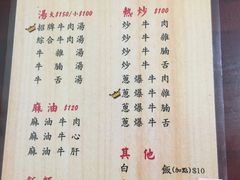 湯大$150/小$100
招牌牛肉湯
綜合牛湯
牛雜湯
牛腩湯
牛舌湯
麻油$120
麻油牛肉
麻油牛心
麻油牛肝
熱炒$100
炒牛肉
炒牛雜
炒牛腩
炒牛舌
蔥爆牛肉
蔥爆牛雜
蔥爆牛腩
蔥爆牛舌
其他
白飯(加點)$10